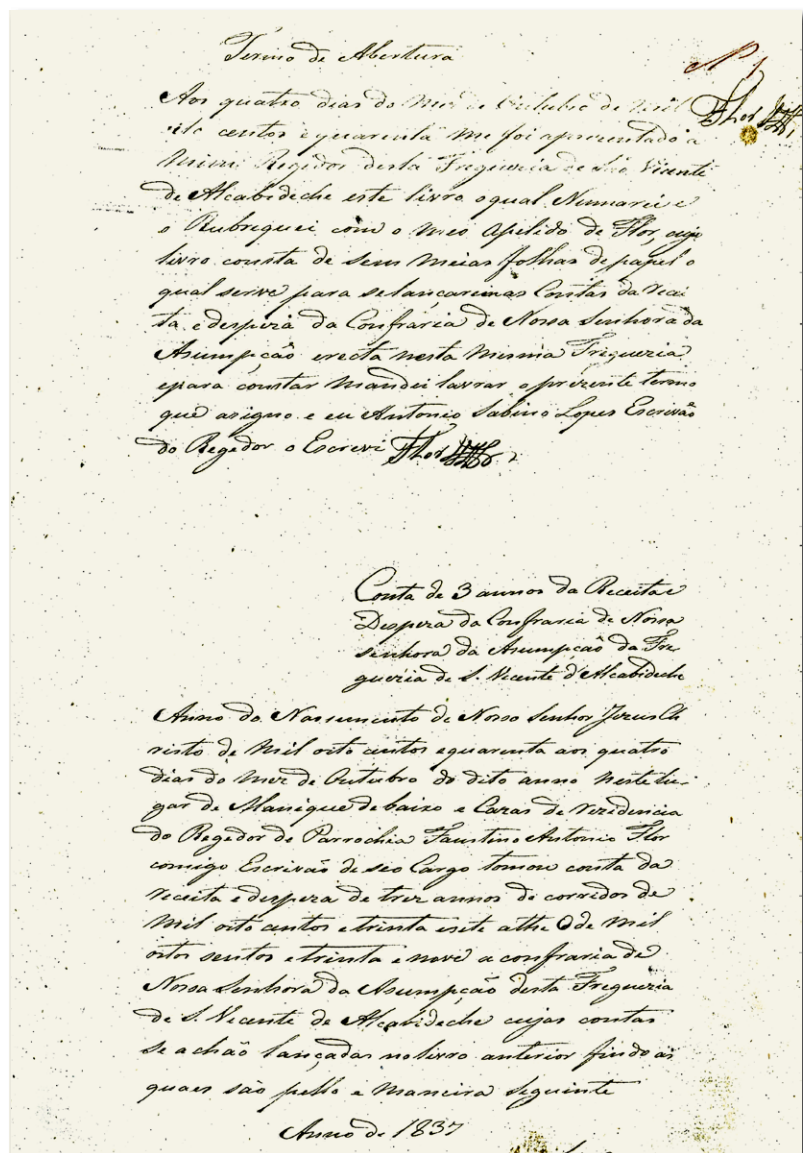 Termo de Abertura
Nº 1
Flor
Aos quatro dias do mez de Outubro de mil
oito centos e quarenta me foi aprezentado a
mim Regedor desta Freguezia de São Vicente
de Alcabideche este livro o qual Numarei e
o Rubriquei com o meo apelido de Flor, cujo
livro consta de sem meias folhas de papel o
qual serve para se lancarem as Contas da recei
ta e despeza da Confraria de Nossa Senhora da
Asumpção erecta nesta mesma Freguezia
e para constar mandei lavrar o prezente termo
que asigno e eu Antonio Sabino Lopes Escrivão
do Regedor o Escrevi Flor
Conta de 3 annos da Receita e
Despeza da Confraria de Nossa
senhora da Asumpção da Fre
guezia de S. Vicente d'Alcabideche
Anno do Nassimento de Nosso Senhor Jezus Ch
risto de mil oito centos e quarenta aos quatro
dias do mez de Outubro do dito anno neste lu-
gar de Manique de baixo e Cazas de rezidencia
do Regedor de Parrochia Faustino Antonio Flor
comigo Escrivão de seo Cargo tomou conta da
receita e despeza de trez annos de corredos de
mil oito centos e trinta e sete athe o de mil
oitos sentos e trinta e nove a confraria de
Nossa Senhora da Asumpção desta Freguezia
de S. Vicente de Alcabideche cujas contas
se achão lançadas no livro anterior findo as
quaes são pello e maneira seguinte
Anno de 1837